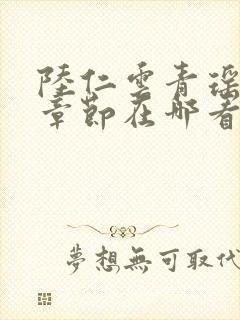 陸仁雲青瑶
章節在哪看
夢想無可取代